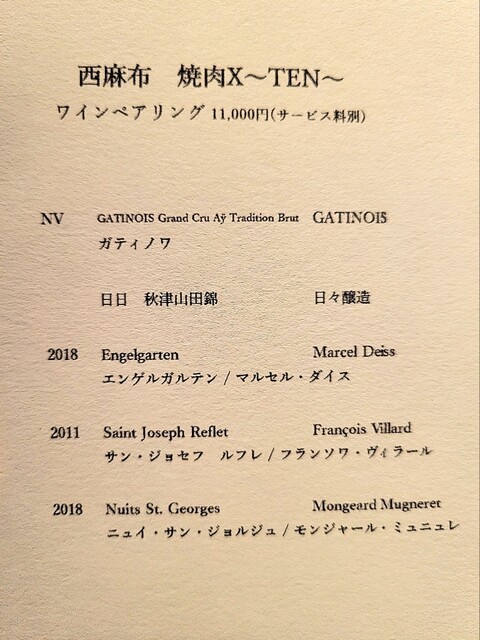 西麻布　焼肉X～TEN～
ワインペアリング 11,000円(サービス料別)
NV GATINOIS Grand Cru Aÿ Tradition Brut GATINOIS
ガティノワ
日日　秋津山田錦 日々醸造
2018 Engelgarten Marcel Deiss
エンゲルガルテン / マルセル・ダイス
2011 Saint Joseph Reflet François Villard
サン・ジョセフ　ルフレ / フランソワ・ヴィラール
2018 Nuits St. Georges Mongeard Mugneret
ニュイ・サン・ジョルジュ / モンジャール・ミュニュレ